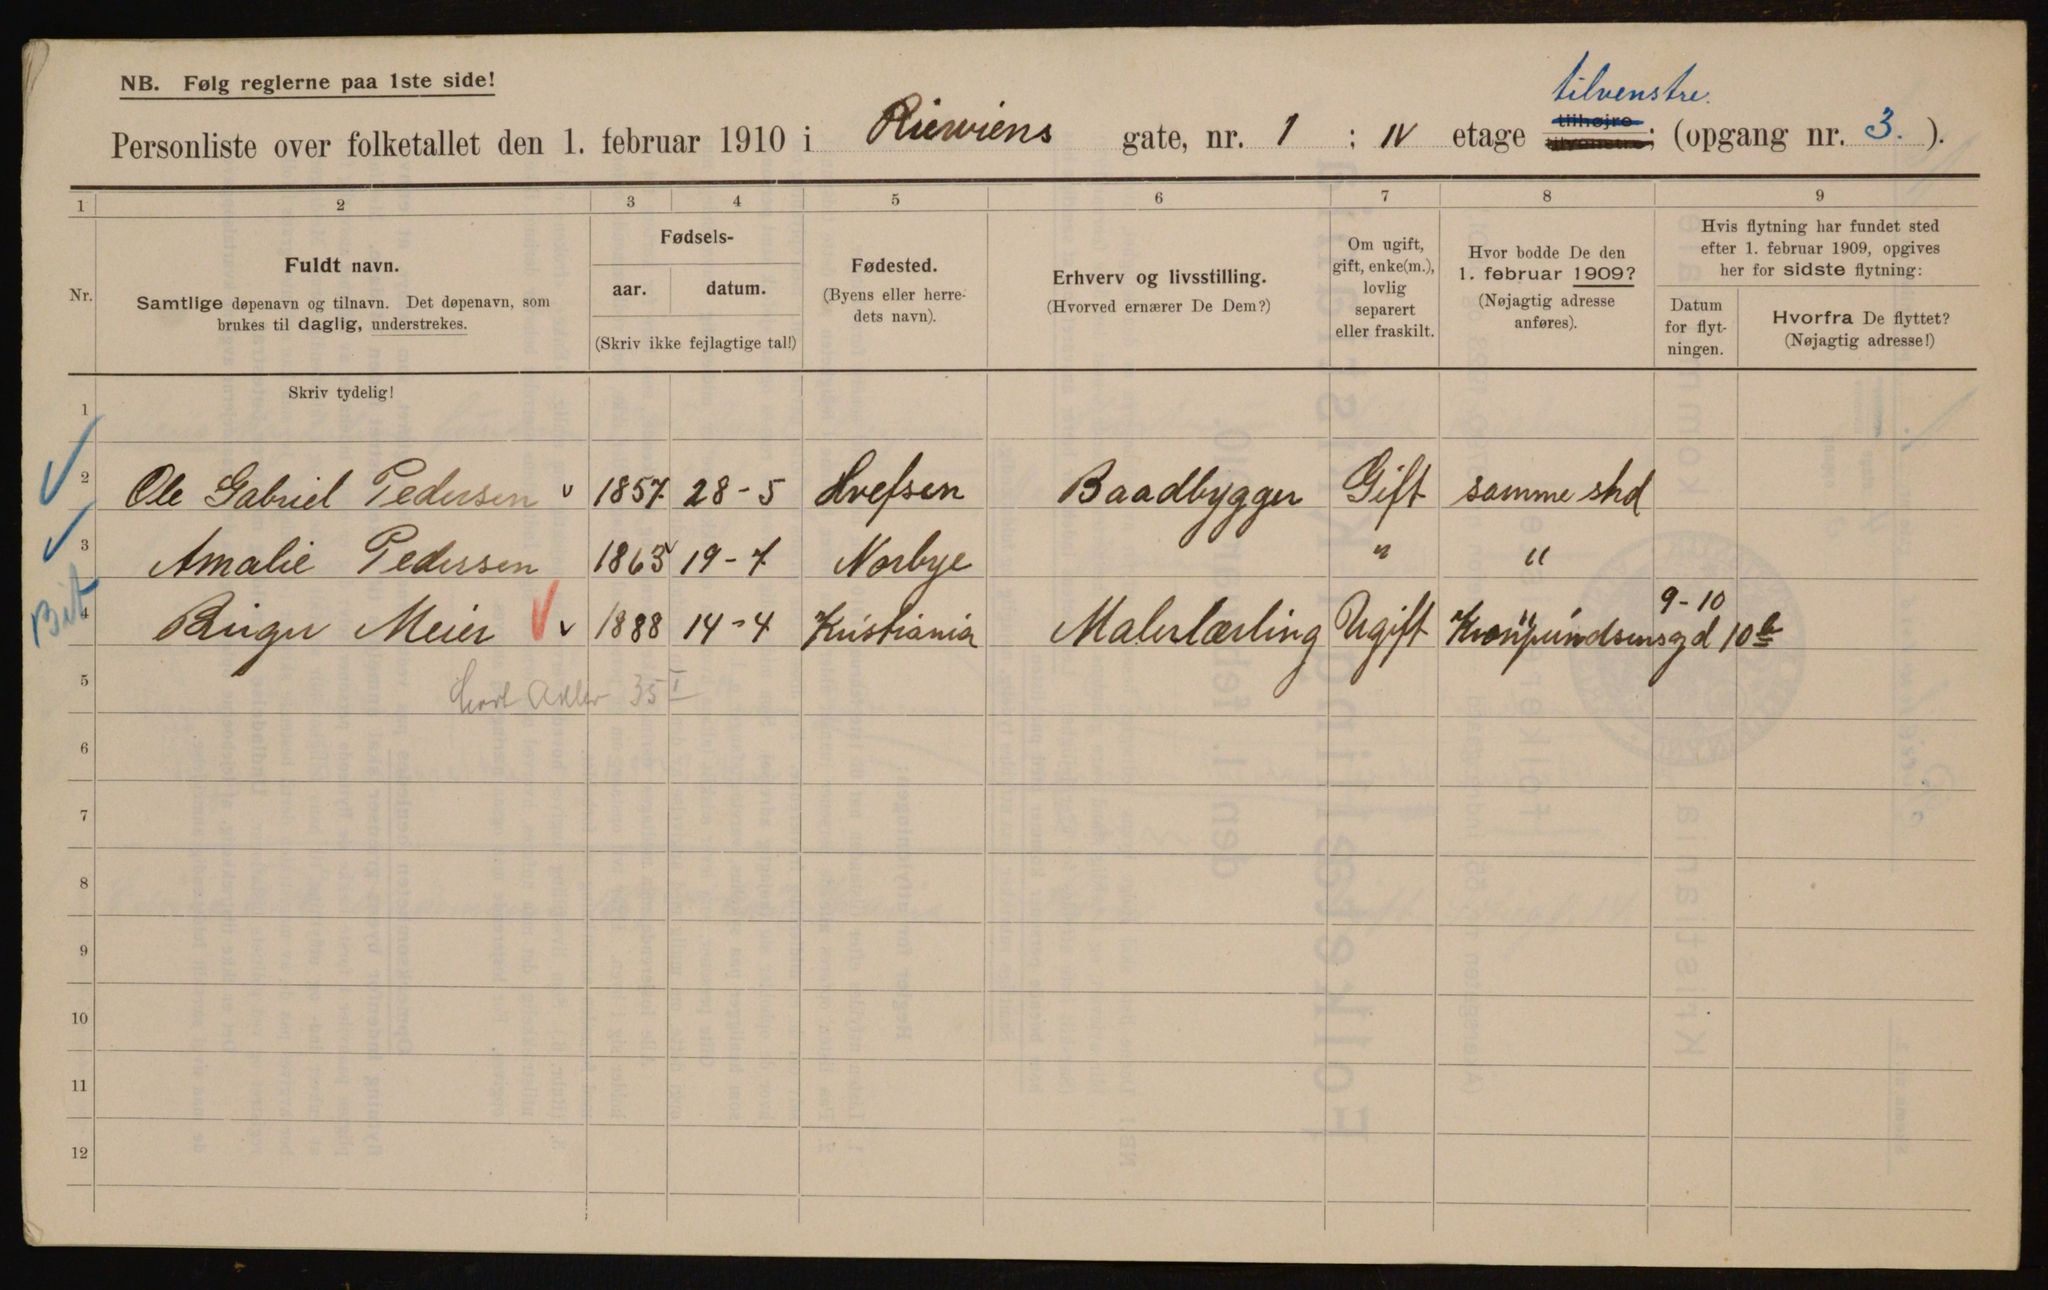 NB. Følg reglerne paa 1ste side!
tilvenstre.
Personliste over folketallet den 1. februar 1910 i gate, nr. 1 ; IV etage tilhøjre tilvenstre; (opgang nr. 3. ).
1 2 3 4 5 6 7 8 9
Nr.
Fuldt navn.
Samtlige døpenavn og tilnavn. Det døpenavn, som
brukes til daglig, understrekes.
Fødsels-
aar. datum.
(Skriv ikke fejlagtige tal!)
Fødested.
(Byens eller herre-
dets navn).
Erhverv og livsstilling.
(Hvorved ernærer De Dem?)
Om ugift,
gift, enke(m.),
lovlig
separert
eller fraskilt.
Hvor bodde De den
1. februar 1909?
(Nøjagtig adresse
anføres).
Hvis flytning har fundet sted
efter 1. februar 1909, opgives
her for sidste flytning:
Datum
for flyt-
ningen.
Hvorfra De flyttet?
(Nøjagtig adresse!)
Skriv tydelig!
1
2 Ole Gabriel Pedersen v 1857 28-5 Baadbygger Gift samme sted
3 Amalie Pedersen 1863 19-7 Norbye " "
4 Birger Meier v 1888 14-4 Kristiania Malerlærling Ugift 9-10 10b
5 35 I
6
7
8
9
10
11
12